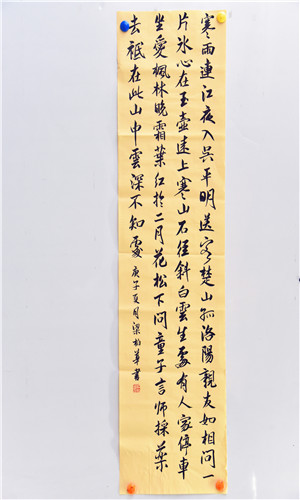 寒雨連江夜入吳平明送客楚山孤洛陽親友如相問一
片冰心在玉壺遠上寒山石徑斜白雲生處有人家停車
坐愛楓林晚霜葉紅於二月花松下問童子言師採藥
去祗在此山中雲深不知處
庚子夏月梁柏華書